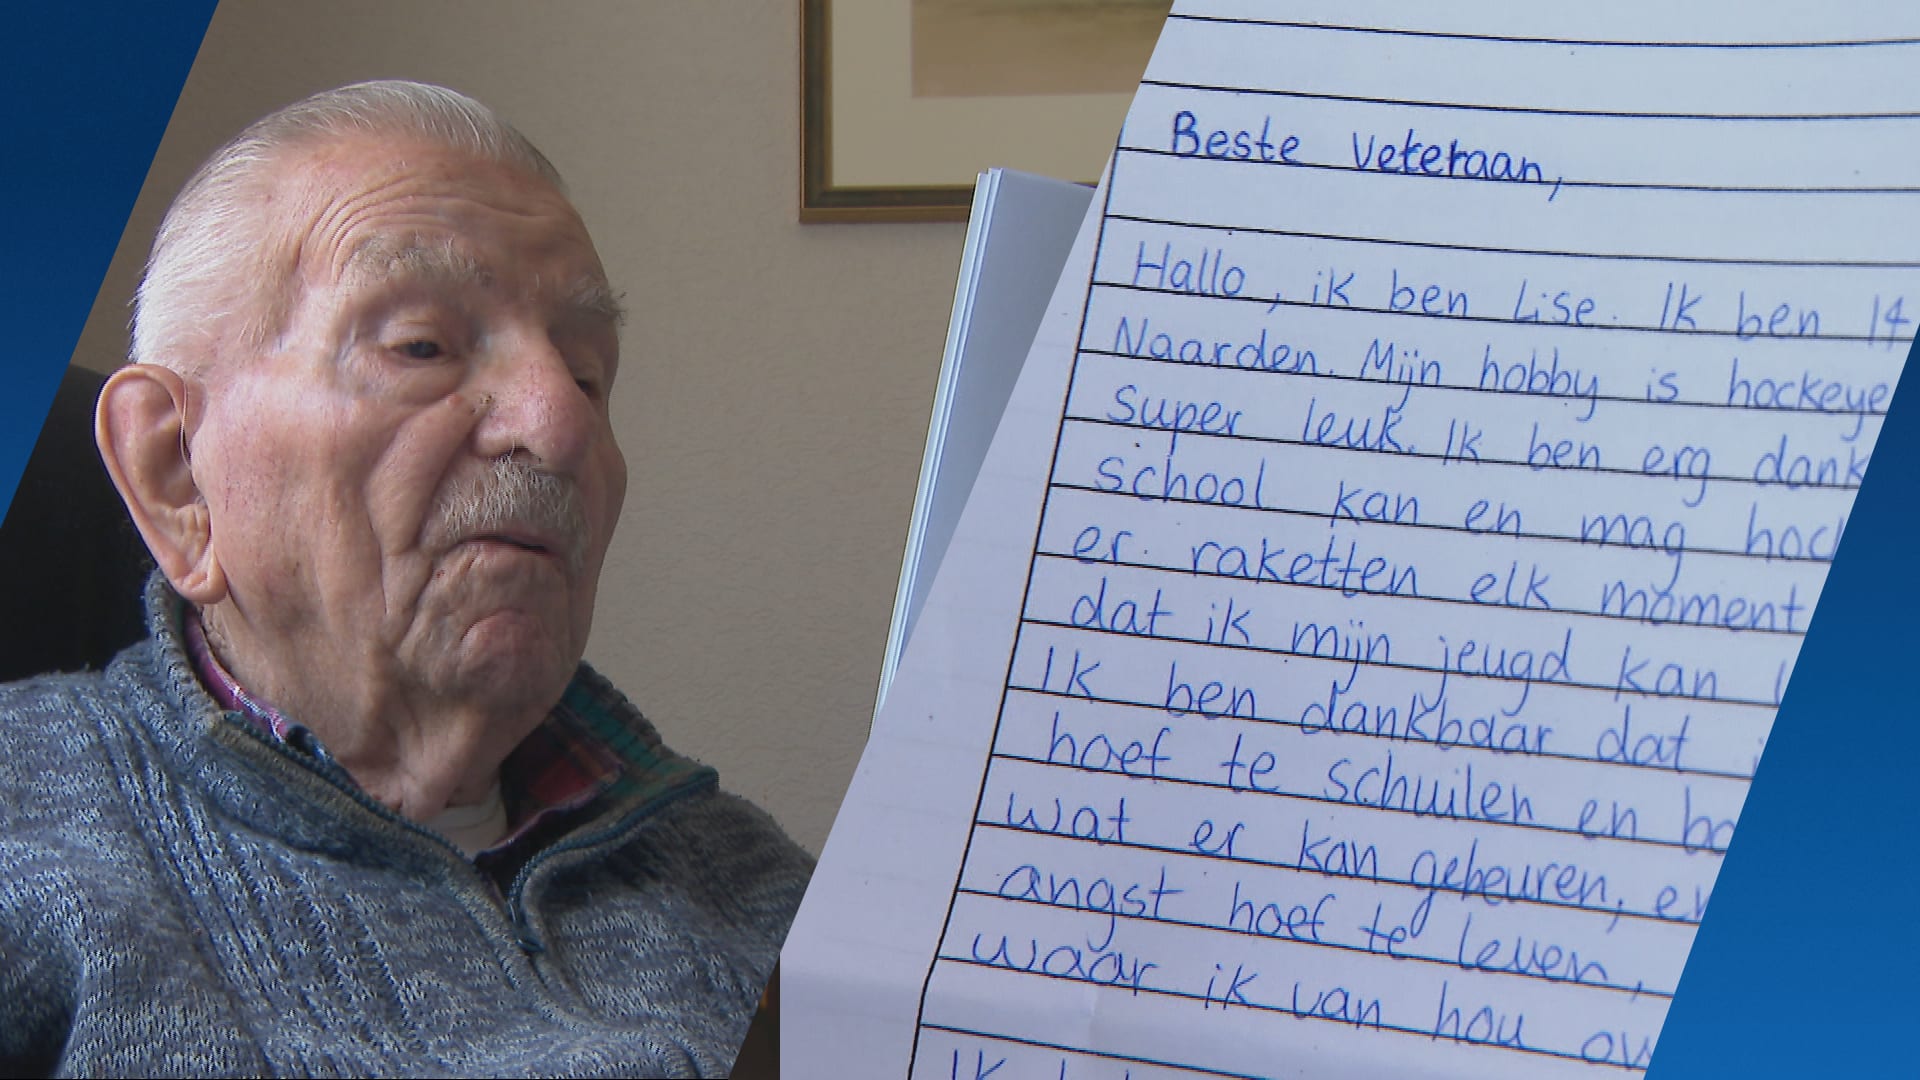 Beste veteraan,
Hallo, ik ben Lise. Ik ben 14
Naarden. Mijn hobby is hockeye
super leuk. Ik ben erg dank
school kan en mag hoc
er raketten elk moment
dat ik mijn jeugd kan
Ik ben dankbaar dat
hoef te schuilen en bo
wat er kan gebeuren, en
angst hoef te leven,
waar ik van hou ov
Ik